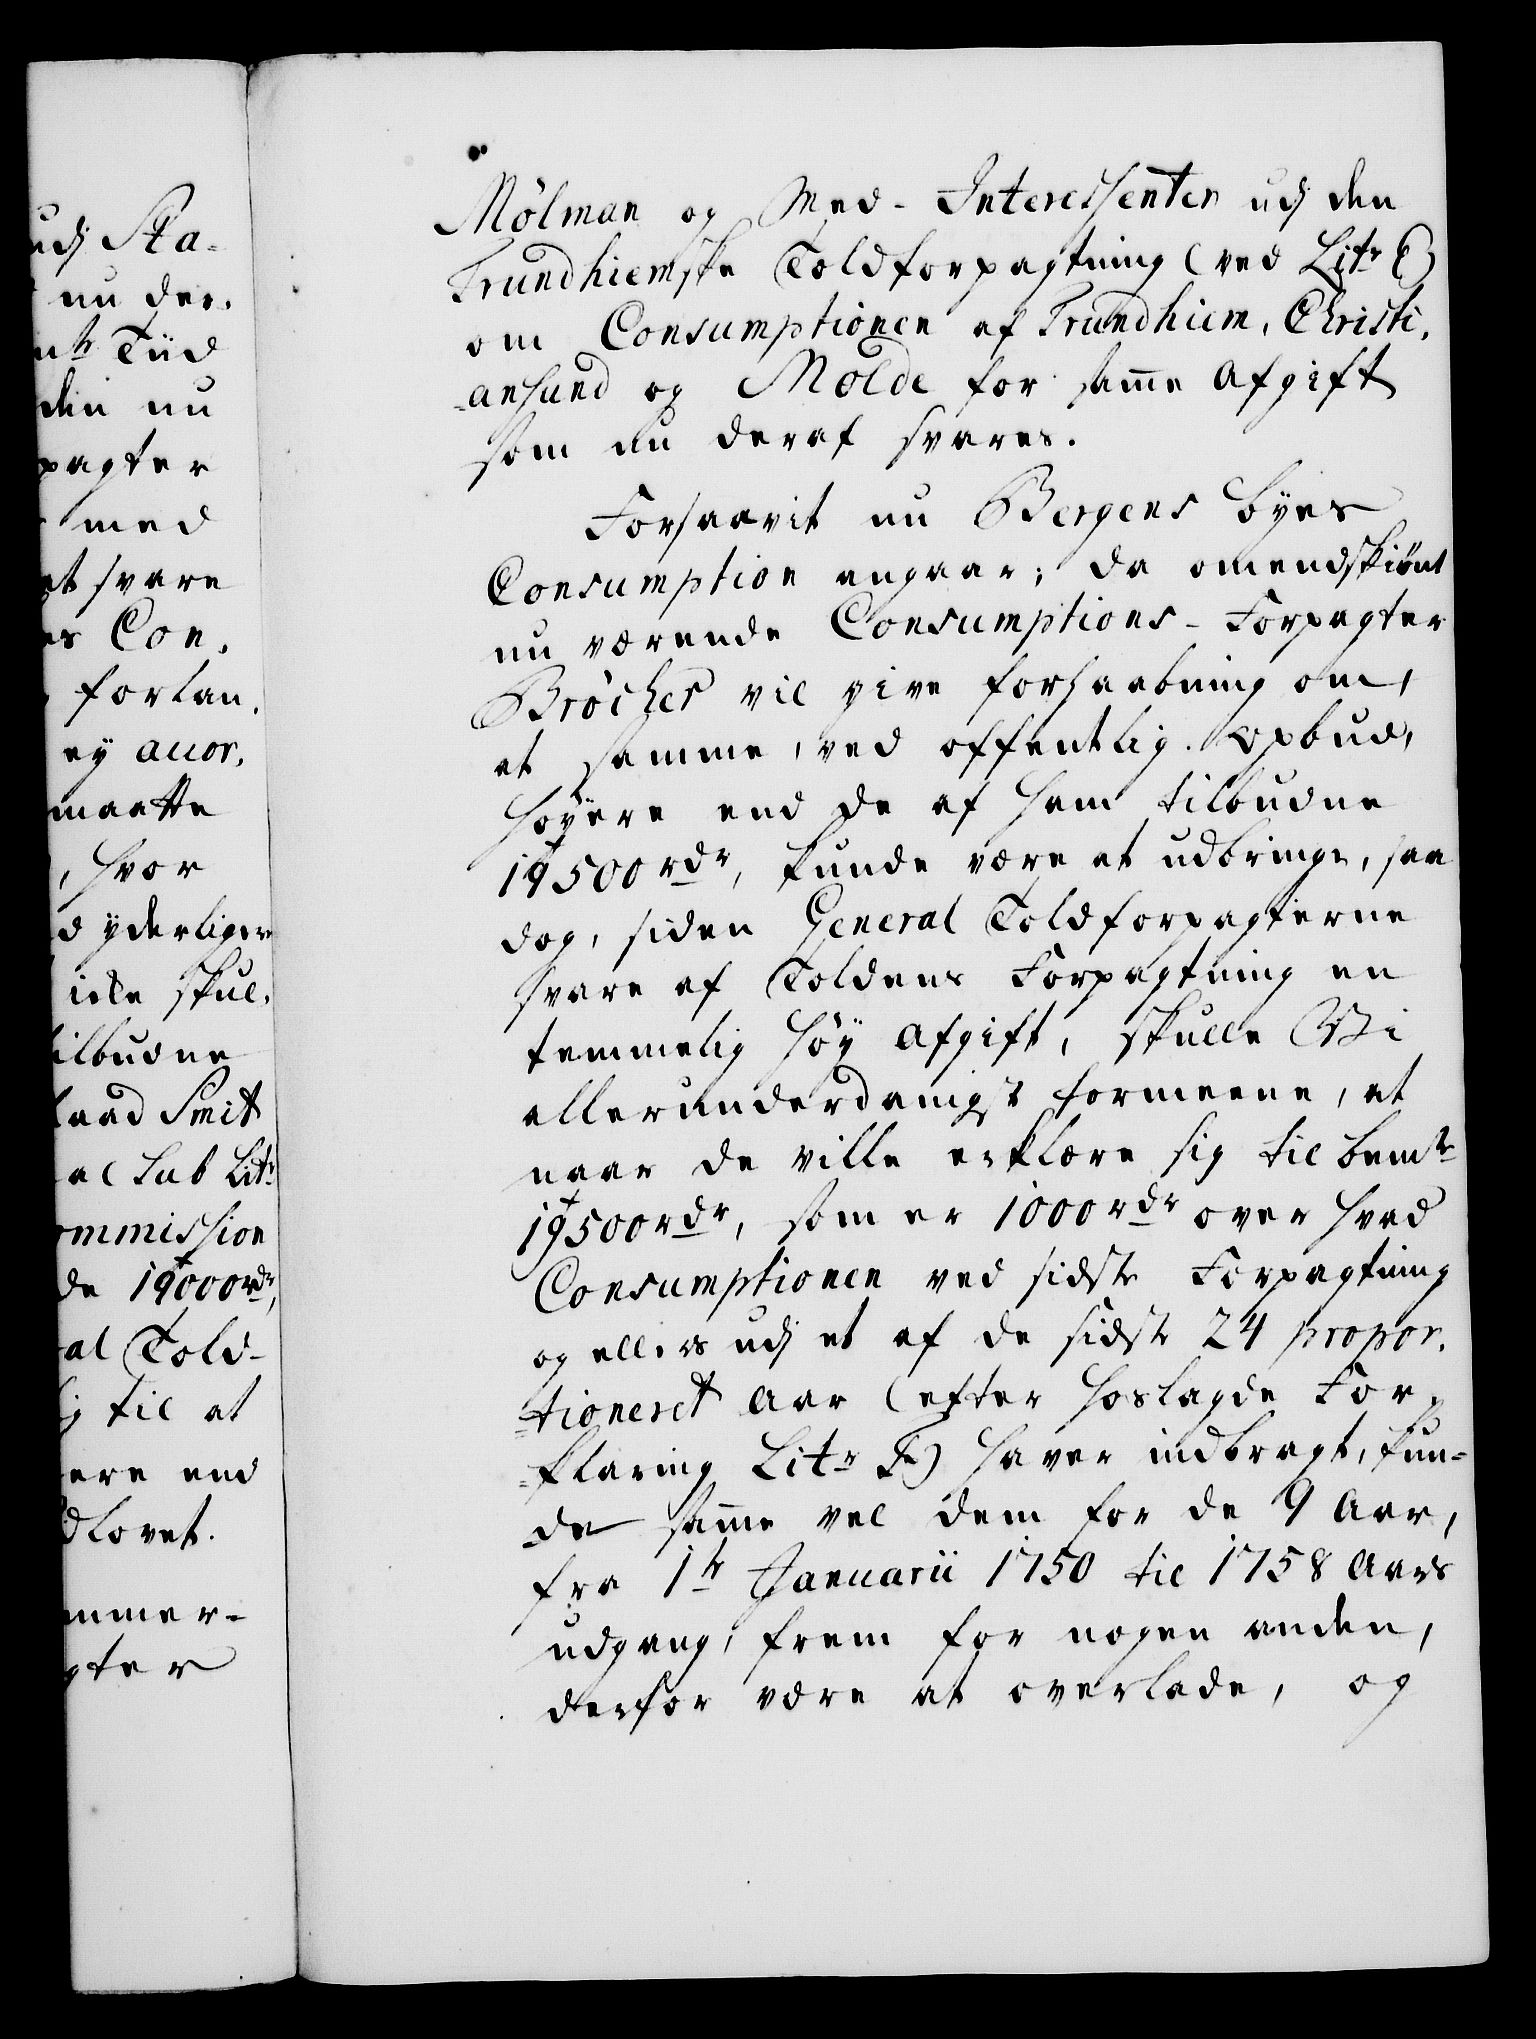 udj Sta-
nu der-
Tiid
den nu
pagter
med
at svare
es Con-
forlan-
ey accor-
maatte
, hvor
d yderligere
icke skul-
tilbudne
raad Smit
al sub Litr
ommission
de 19000 rdr,
al Told-
ig til at
ere end
dlovet.
mmer-
gter
Mølman og Med-Interessenter udj den
Trundhiemske Toldforpagtning (ved Litr E)
om Consumptionen af Trundhiem, Christi-
-ansund og Molde for samme Afgift
som nu deraf svares.
Forsaavit nu Bergens Byes
Consumption angaar; da omendskiønt
nu værende Consumptions-Forpagter
Bröcher vil give forhaabning om,
at samme, ved offentlig Opbud,
høyere end de af ham tilbudne
19500 rdr, kunde være at udbringe, saa
dog, siden General Toldforpagterne
svare af Toldens Forpagtning en
temmelig høy Afgift, skulle Vi
allerunderdanigst formeene, at
naar de ville erklære sig til bemte
19500 rdr, som er 1000 rdr over hvad
Consumptionen ved sidste Forpagtning
og ellers udj et af de sidste 24 propor-
-tioneret Aar (efter hoslagde For-
-klaring Litr F) haver indbragt, kun-
-de samme vel dem for de 9 Aar,
fra 1te Januarii 1750 til 1758 Aars
udgang, frem for nogen anden,
derfor være at overlade, og